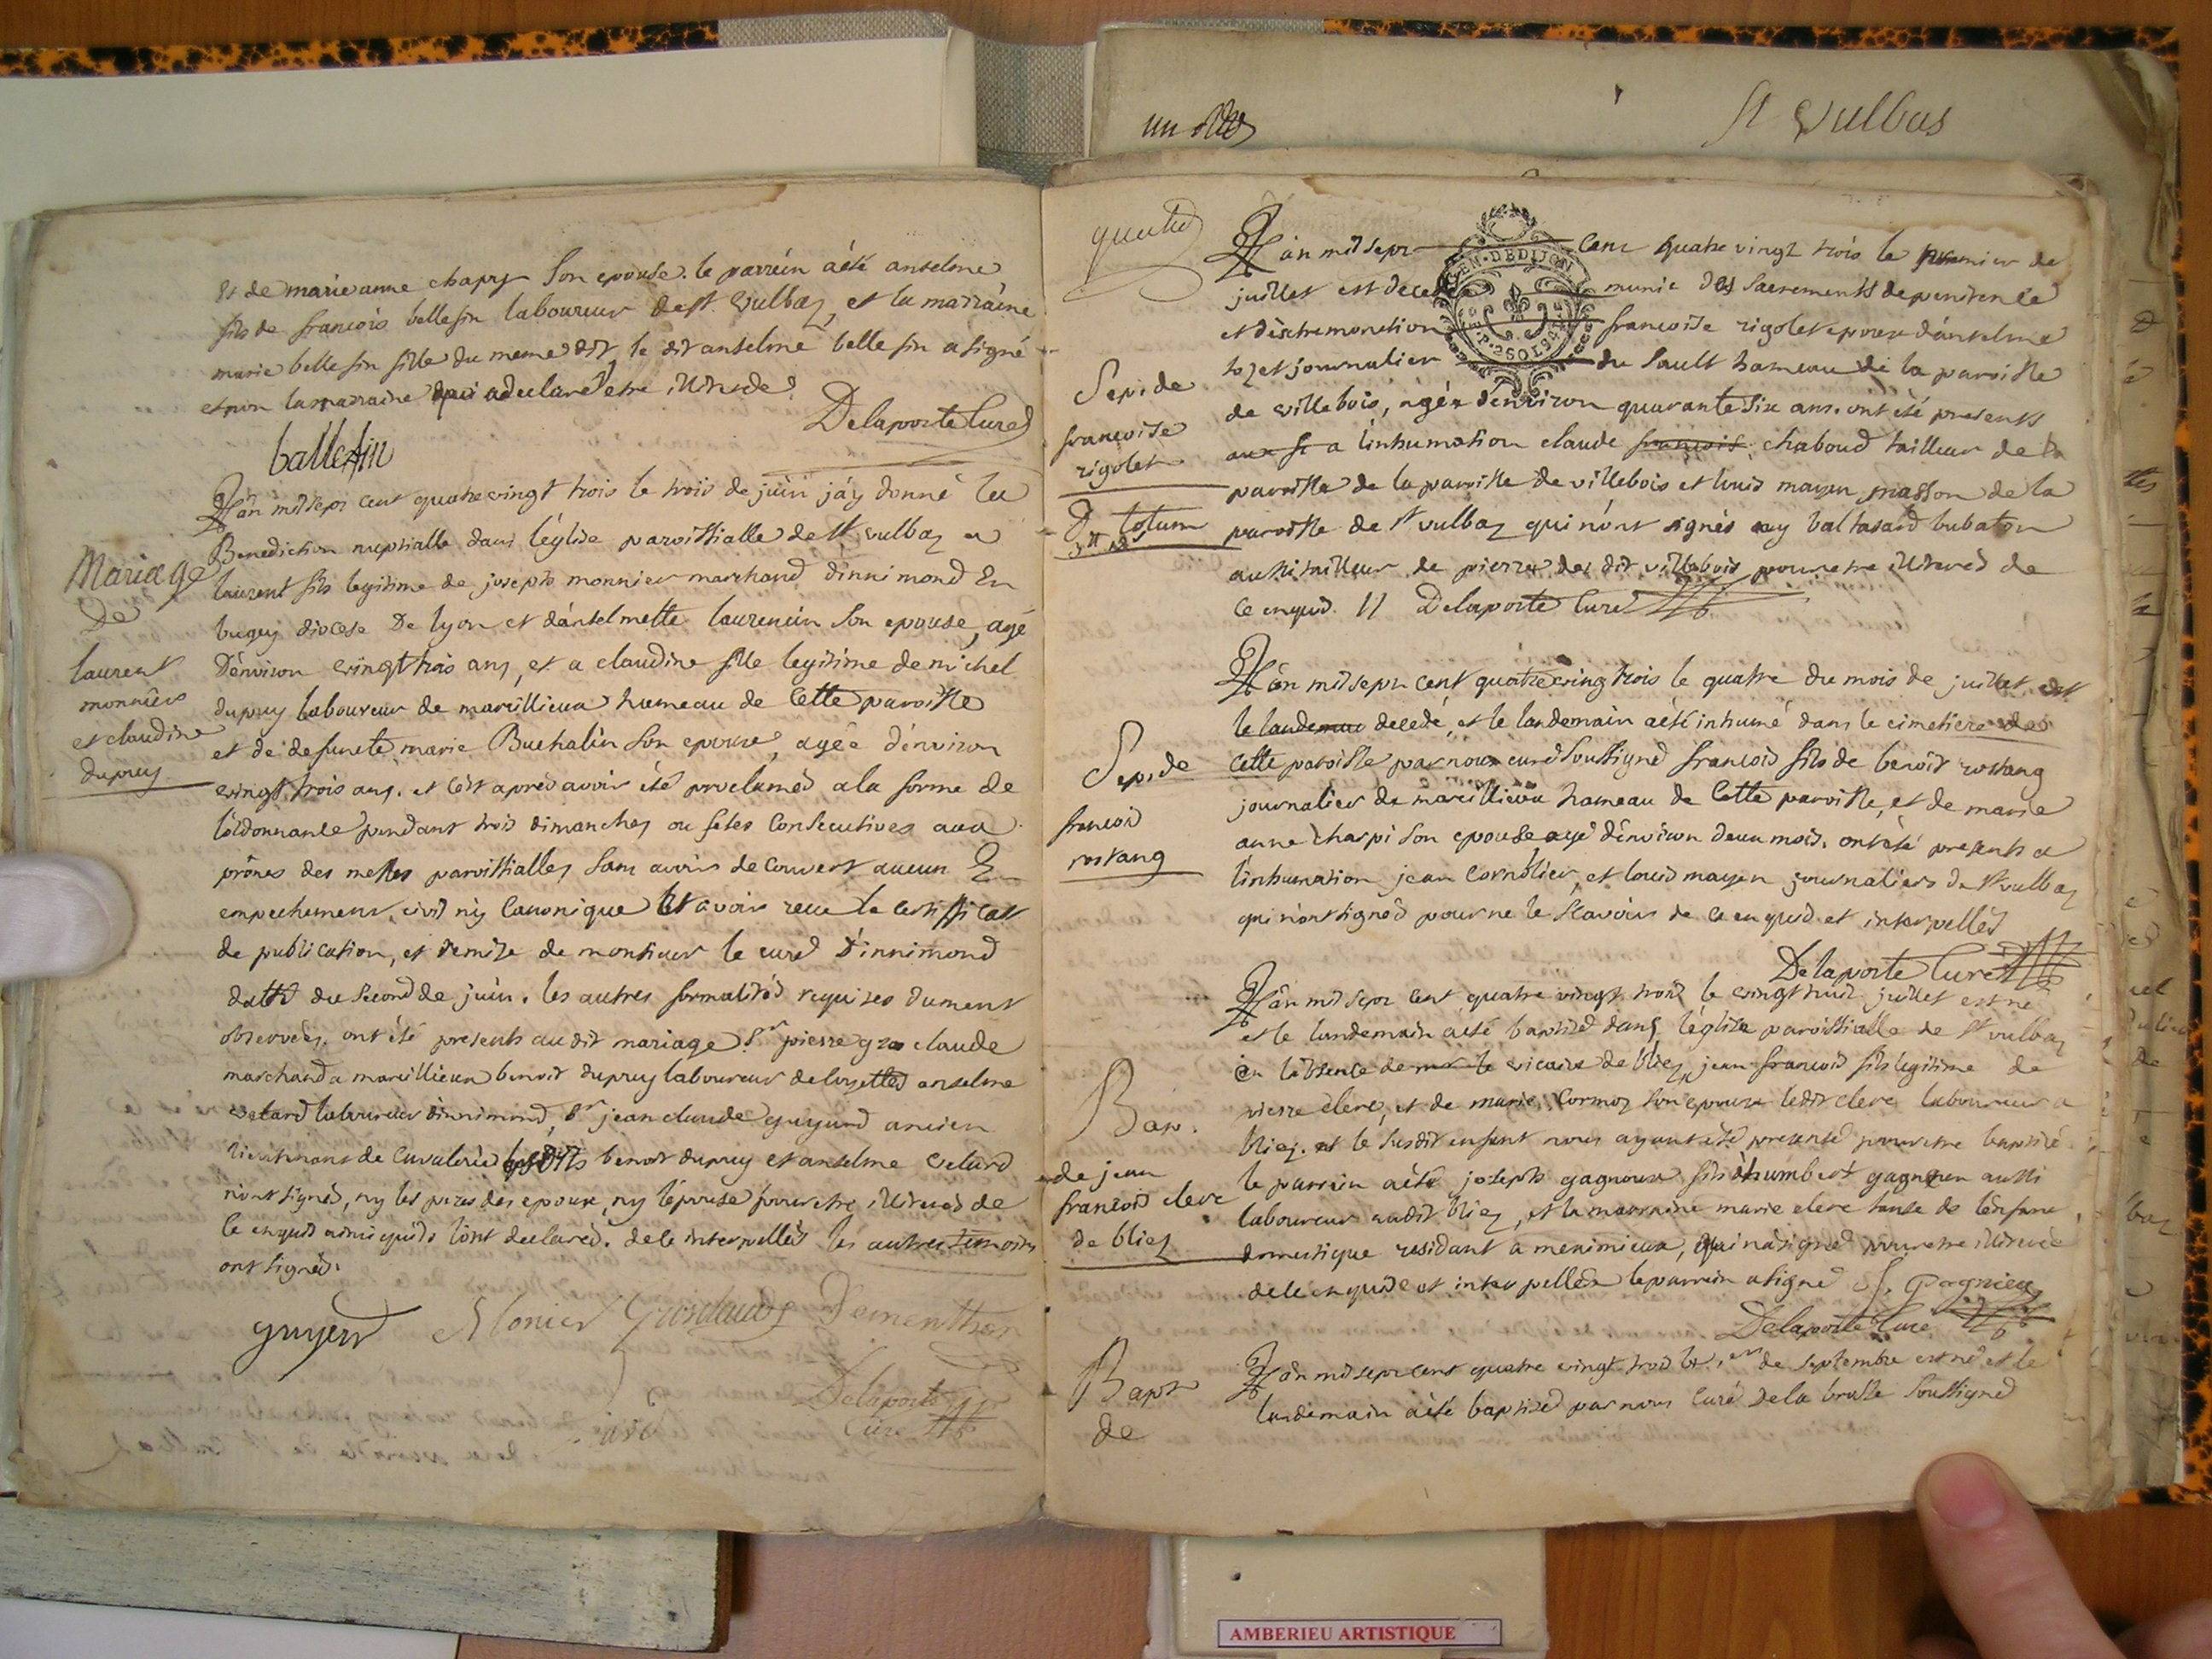 St Vulbas
Et de marie anne chapy son epouse. le parrein a été anselme
fils de francois bellesin laboureur de st. vulbaz, et la marraine
marie bellesin fille du meme dit, le dit anselme bellesin a signé
et non la marraine qui a declaré etre illiterde
Delaporte Curé
ballesin
Mariage
De
laurent
monnier
et claudine
dupuy
L'an mil sept cent quatre vingt trois le trois de juin j'ay donné la
Benediction nuptialle dans l'église paroissialle de st vulbaz a
laurent fils legitime de joseph monnier marchand d'innimond En
bugey diocese De lyon et d'anselmette laurencin son epouse, agé
D'environ vingt trois ans, et a claudine fille legitime de michel
dupuy laboureur de marillieux hameau de Cette paroisse
et de defuncte marie Buchalin son epouse, agée d'environ
vingt trois ans. et c'est apres avoir été proclamés a la forme de
l'ordonnance pendant trois dimanches ou fetes Consecutives aux
prônes des messes paroissialles sans avoir decouvert aucun En
empechement civil n'y Canonique Et avoir receu le certifficat
de publication, et remise de monsieur le curé D'innimond
datté du second de juin. les autres formalités requises dument
observées. ont été presents au dit mariage Sr pierre gros claude
marchand a marillieux benoit dupuy laboureur de loyettes anselme
velard laboureur d'innimond, Sr jean claude guyard ancien
lieutenant de Cavalerie lesdits benoit dupuy et anselme velard
n'ont signé, ny les peres des epoux, ny l'epouse pour etre illiterés de
ce enquis ainsi qu'ils l'ont declaré. de ce interpellés les autres temoins
ont signés.
guyerd Monier Grosclaude Dementhon
Delaporte
Curé
quatre
L'an mil sept cent quatre vingt trois le premier de
juillet est decedée munie des sacrements de penitence
et d'extremonction francoise rigolet epouse d'anselme
journalier du sault hameau de la paroisse
de villebois, agée d'environ quarante six ans. ont été presents
a l'inhumation claude francois chaboud tailleur de
paroisse de la paroisse de villebois et louis mayen masson de la
paroisse de st vulbaz qui n'ont signés ny baltasard bubaton
aussi tailleur de pierre du dit villebois pour etre illiterés de
ce enquis. Delaporte Curé
Sep. de
francoise
rigolet
L'an mil sept cent quatre vingt trois le quatre du mois de juillet est
le landemain decedé, et le landemain a été inhumé dans le cimetiere de
Cette paroisse par nous curé soussigné francois fils de benoit rostang
journalier de marillieux hameau de Cette paroisse, et de marie
anne charpi son epouse agé d'environ deux mois. ont été presents a
l'inhumation jean Cornolier, et louis mayen journaliers de st vulbaz
qui n'ont signés pour ne le scavoir de ce enquis et interpellés
Delaporte Curé
Sep. de
francois
rostang
L'an mil sept cent quatre vingt trois le vingt huit juillet est né
et le landemain a été baptisé dans l'église paroissialle de st vulbaz
en l'absence de le vicaire de bliez, jean francois fils legitime de
pierre clerc, et de marie Cormoz son epouse ledit clerc laboureur a
bliez. et le susdit enfant nous ayant été presenté pour etre baptisé
le parrein a été joseph gagnoux fils d'humbert gagneux aussi
laboureur audit bliez, et la marraine marie clerc tante de l'enfant
domestique residant a meximieux, qui n'a signé pour etre illiterée
de ce enquise et interpellée le parrein a signé J. gagnieux
Delaporte Curé
Bap.
de jean
francois clerc
de bliez
L'an mil sept cent quatre vingt trois le 1er de septembre est né et le
landemain a été baptisé par nous Curé De la brusse soussigné
Bapt
de
AMBERIEU ARTISTIQUE